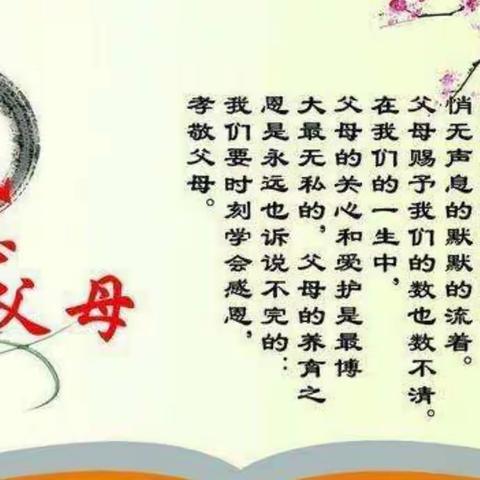 悄无声息的默默的流着。
父母赐予我们的数也数不清。
在我们的一生中，
父母的关心和爱护是最博
大最无私的，父母的养育之
恩是永远也诉说不完的：
我们要时刻学会感恩，
孝敬父母。
父母